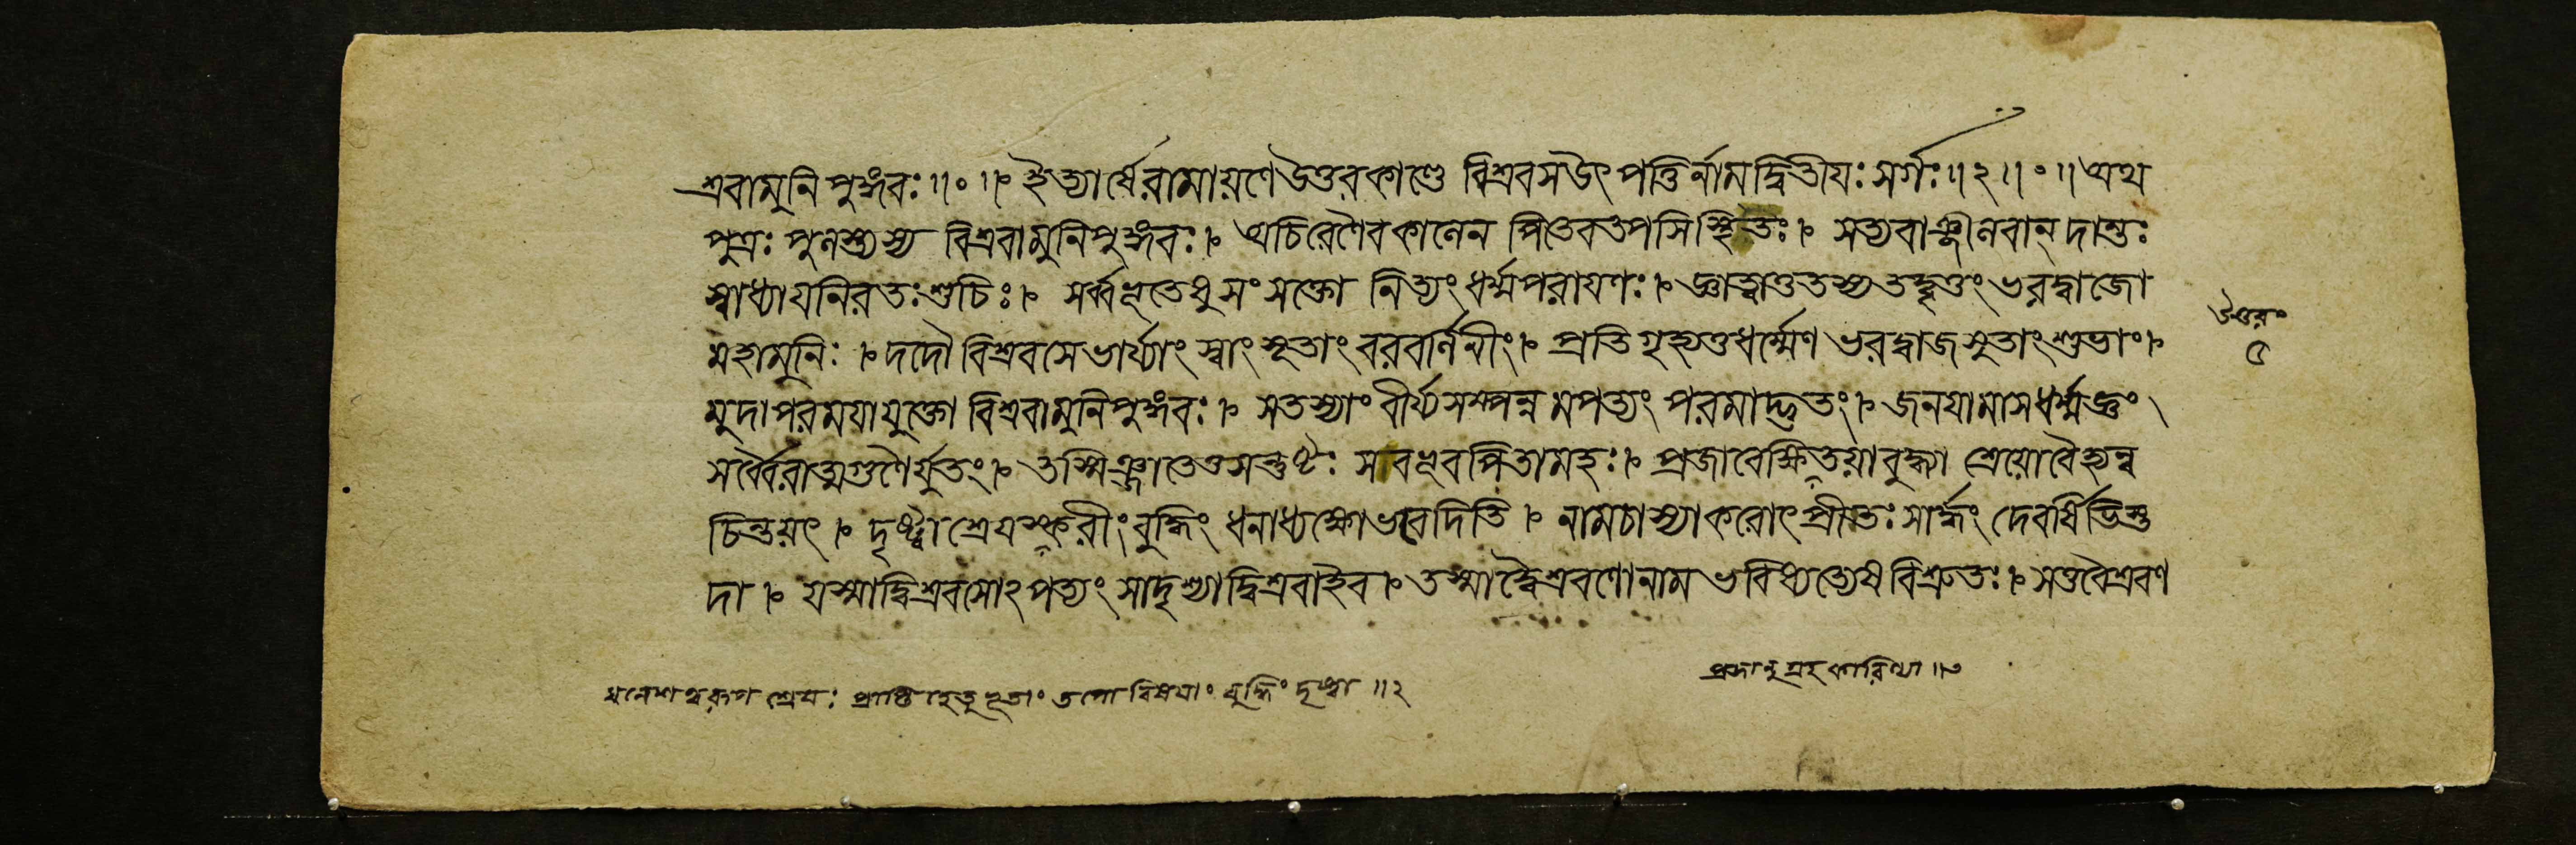 শ্রবামুনিপুঙ্গবঃ॥०॥ ইত্যার্ষেরামায়ণেউত্তরকাণ্ডে বিশ্রবসউৎপত্তির্নামদ্বিতীযঃ সর্গঃ॥২॥०॥অথ
পুত্রঃ পুলস্ত্যস্য বিশ্রবামুনিপুঙ্গবঃ। অচিরেণৈবকালেন পিতেবতপসিস্থিতঃ। সত্যবাঞ্ছীলবান্ দান্তঃ
স্বাধ্যাযনিরতঃশুচিঃ। সর্ব্বভূতেষুসংসক্তো নিত্যংধর্ম্মপরাযণঃ। জ্ঞাত্বাতুতস্যতদ্বৃত্তংভরদ্বাজো
মহামুনিঃ । দদৌবিশ্রবসেভার্য্যাং স্বাংসুতাংবরবর্ণিনীং। প্রতিগৃহ্যতুধর্ম্মেণ ভরদ্বাজসুতাংশুভাং।
উত্তরং
৫
মুদাপরময়াযুক্তো বিশ্রবামুনিপুঙ্গবঃ। সতস্যাং বীর্য্যসম্পন্নমপত্যং পরমাদ্ভুতং। জনযামাসধর্ম্মজ্ঞং
সর্ব্বৈরাত্মগুণৈর্যুতং। তস্মিঞ্জাতেতুসন্তুষ্টঃ সবভূবপিতামহঃ। প্রজাবেক্ষিতয়াবুদ্ধ্যা শ্রেয়োবৈহ্যন্ব
চিন্তয়ৎ । দৃষ্ট্বাশ্রেযস্করীংবুদ্ধিং ধনাধ্যক্ষোভবেদিতি । নামচাস্যাকরোৎপ্রীতঃ সার্দ্ধং দেবর্ষিভিস্ত
দা । যস্মাদ্বিশ্রবসোঽপত্যং সাদৃশ্যাদ্বিশ্রবাইব। তস্মাদ্বৈশ্রবণোনাম ভবিষ্যত্যেষবিশ্রুতঃ। সতুবৈশ্রবণ
প্রজানুগ্রহকারিণ্যা॥১
ধনেশত্বরূপ শ্রেযঃ প্রাপ্তিহেতুভূতাং তপোবিষযাং বুদ্ধিং দৃষ্ট্বা॥২